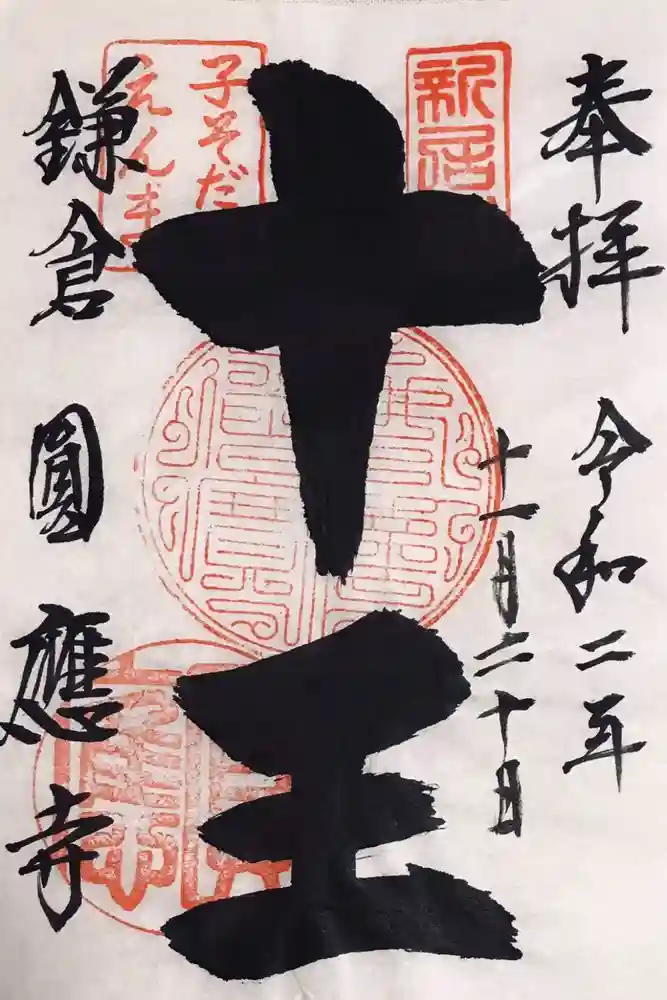 奉拝 令和二年
十一月二十日
新居
十王
子そだ
えんま
鎌倉 圓應寺